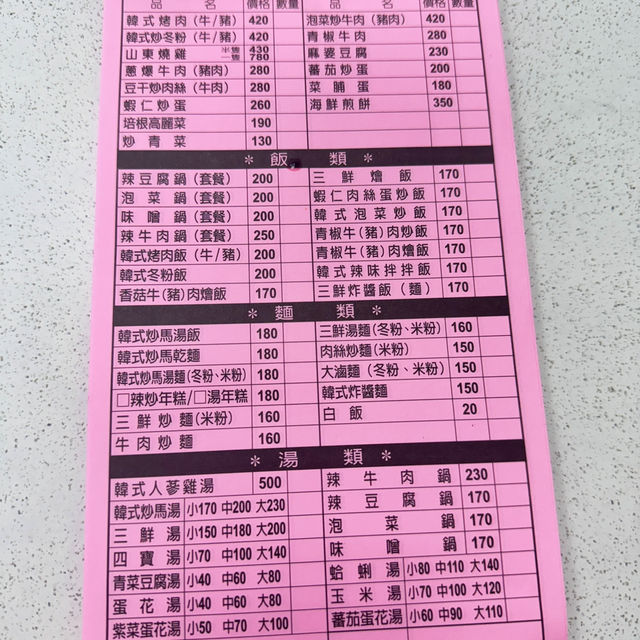 品 名 價格 數量
韓式烤肉（牛/豬） 420
韓式炒冬粉（牛/豬） 420
山東燒雞 半隻 430 一隻 780
蔥爆牛肉（豬肉） 280
豆干炒肉絲（牛肉） 280
蝦仁炒蛋 260
培根高麗菜 190
炒青菜 130
品 名 價格 數量
泡菜炒牛肉（豬肉） 420
青椒牛肉 280
麻婆豆腐 230
蕃茄炒蛋 200
菜脯蛋 180
海鮮煎餅 350
＊ 飯 類 ＊
辣豆腐鍋（套餐） 200
泡菜鍋（套餐） 200
味噌鍋（套餐） 200
辣牛肉鍋（套餐） 250
韓式烤肉飯（牛/豬） 200
韓式冬粉飯 200
香菇牛（豬）肉燴飯 170
三鮮燴飯 170
蝦仁肉絲蛋炒飯 170
韓式泡菜炒飯 170
青椒牛（豬）肉炒飯 170
青椒牛（豬）肉燴飯 170
韓式辣味拌拌飯 170
三鮮炸醬飯（麵） 170
＊ 麵 類 ＊
韓式炒馬湯飯 180
韓式炒馬乾麵 180
韓式炒馬湯麵（冬粉、米粉） 180
□辣炒年糕/□湯年糕 180
三鮮炒麵（米粉） 160
牛肉炒麵 160
三鮮湯麵（冬粉、米粉） 160
肉絲炒麵（米粉） 150
大滷麵（冬粉、米粉） 150
韓式炸醬麵 150
白飯 20
＊ 湯 類 ＊
韓式人蔘雞湯 500
韓式炒馬湯 小170 中200 大230
三鮮湯 小150 中180 大200
四寶湯 小70 中100 大140
青菜豆腐湯 小40 中60 大80
蛋花湯 小40 中60 大80
紫菜蛋花湯 小50 中70 大100
辣牛肉鍋 230
辣豆腐鍋 170
泡菜鍋 170
味噌鍋 170
蛤蜊湯 小80 中110 大140
玉米湯 小70 中100 大120
蕃茄蛋花湯 小60 中90 大110